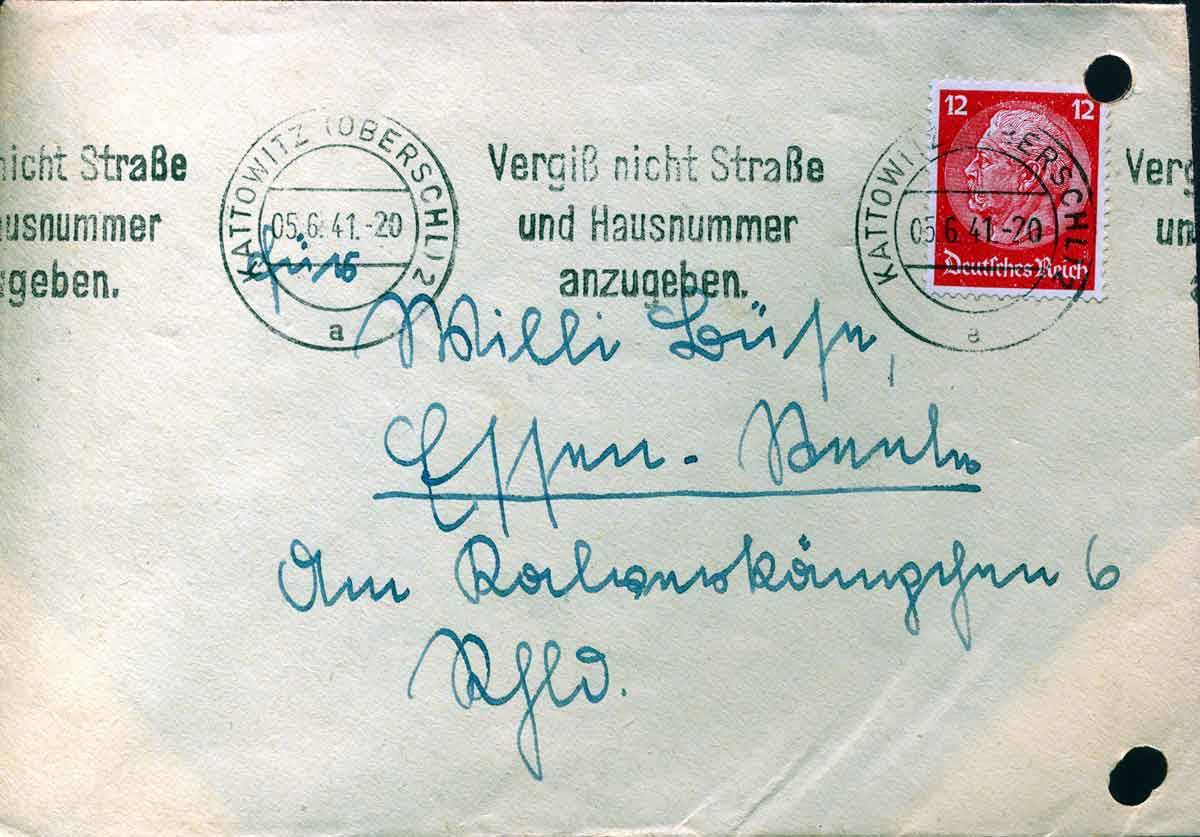 nicht Straße
ausnummer
geben.
KATTOWITZ (OBERSCHL) 2
05.6.41.-20
a
Vergiß nicht Straße
und Hausnummer
anzugeben.
KATTOWITZ (OBERSCHL) 2
05.6.41.-20
a
12 12
Deutsches Reich
Verg
un
Willi
Essen-
Am 6
Rhld.